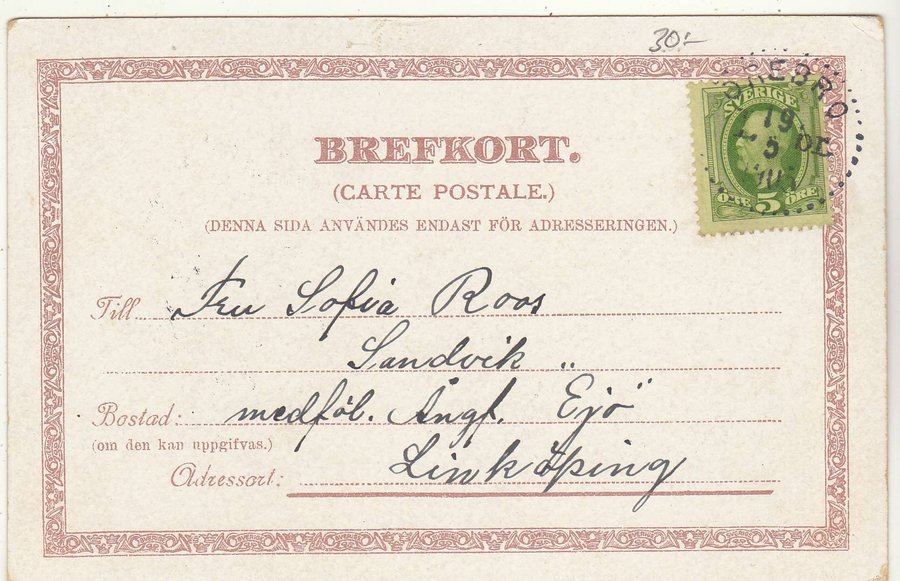 30:-
ÖREBRO
SVERIGE
19
5
ÖRE 5 ÖRE
BREFKORT.
(CARTE POSTALE.)
(DENNA SIDA ANVÄNDES ENDAST FÖR ADRESSERINGEN.)
Till Fru Sofia Roos
Sandvik
Bostad: medföl. Ångf. „Ejö"
(om den kan uppgifvas.)
Adressort: Linköping